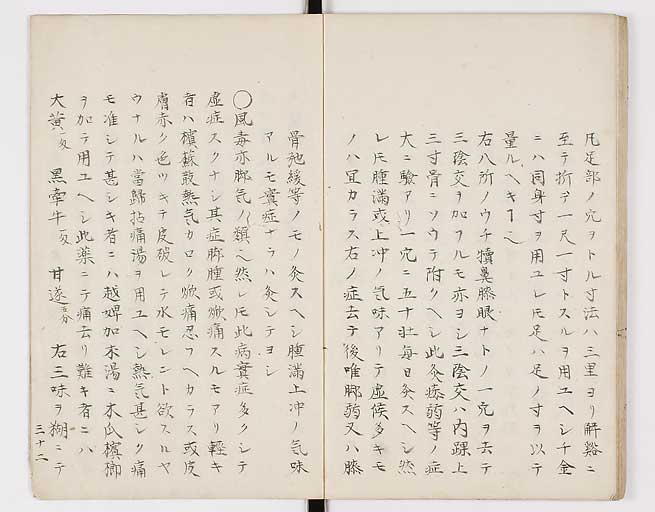 凡足部ノ穴ヲトル寸法ハ三里ヨリ解谿ニ
至テ折テ一尺一寸トスルヲ用ユヘシ千金
ニハ同身寸ヲ用ユレ𪜈足ハ足ノ寸ヲ以テ
量ルヘキヿ也
右八所ノウチ犢鼻膝眼ナトノ一穴ヲ去テ
三陰交ヲ加フルモ亦ヨシ三陰交ハ内踝上
三寸骨ニソウテ附クヘシ此灸痿弱等ノ症
大ニ驗アリ一穴ニ五十壯毎日灸スヘシ然
レ𪜈腫滿或上冲ノ気味アリテ虛候多キモ
ノハ宜カラス右ノ症去テ後唯脚弱又ハ膝
骨弛緩等ノモノ灸スヘシ腫滿上冲ノ気味
アルモ實症ナラハ灸シテヨシ
○風毒亦脚気ノ類也然レ𪜈此病實症多クシテ
虛症スクナシ其症脚腫或焮痛スルモアリ輕キ
者ハ檳蘇散熱気カロク焮痛忍フヘカラス或皮
膚赤ク色ツキテ皮破レテ水モレント欲スルヤ
ウナルハ當歸拈痛湯ヲ用ユヘシ熱気甚シク痛
モ准シテ甚シキ者ニハ越婢加朮湯ニ木瓜檳榔
ヲ加テ用ユヘシ此藥ニテ痛去リ難キ者ニハ
大黄 黒牽牛 甘遂 右三味ヲ糊ニテ
三十二